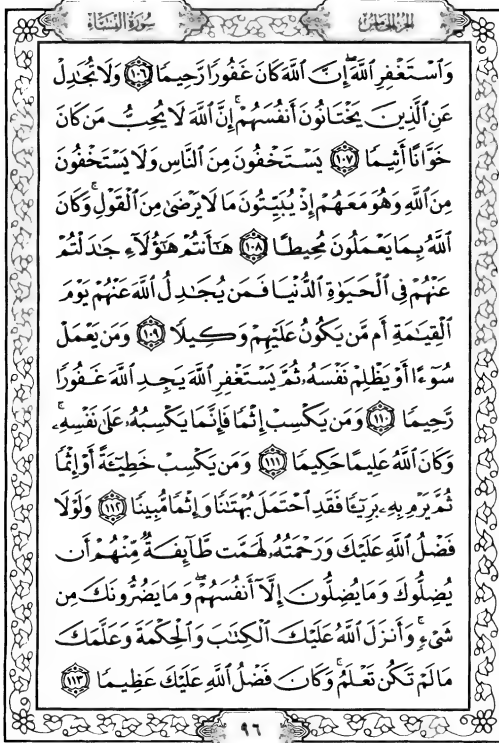 سُورَةُ النِّسَاءِ
الجُزءُ الخَامِسُ
وَٱسۡتَغۡفِرِ ٱللَّهَۖ إِنَّ ٱللَّهَ كَانَ غَفُورٗا رَّحِيمٗا ١٠٦ وَلَا تُجَٰدِلۡ
عَنِ ٱلَّذِينَ يَخۡتَانُونَ أَنفُسَهُمۡۚ إِنَّ ٱللَّهَ لَا يُحِبُّ مَن كَانَ
خَوَّانًا أَثِيمٗا ١٠٧ يَسۡتَخۡفُونَ مِنَ ٱلنَّاسِ وَلَا يَسۡتَخۡفُونَ
مِنَ ٱللَّهِ وَهُوَ مَعَهُمۡ إِذۡ يُبَيِّتُونَ مَا لَا يَرۡضَىٰ مِنَ ٱلۡقَوۡلِۚ وَكَانَ
ٱللَّهُ بِمَا يَعۡمَلُونَ مُحِيطًا ١٠٨ هَٰٓأَنتُمۡ هَٰٓؤُلَآءِ جَٰدَلۡتُمۡ
عَنۡهُمۡ فِي ٱلۡحَيَوٰةِ ٱلدُّنۡيَا فَمَن يُجَٰدِلُ ٱللَّهَ عَنۡهُمۡ يَوۡمَ
ٱلۡقِيَٰمَةِ أَم مَّن يَكُونُ عَلَيۡهِمۡ وَكِيلٗا ١٠٩ وَمَن يَعۡمَلۡ
سُوٓءًا أَوۡ يَظۡلِمۡ نَفۡسَهُۥ ثُمَّ يَسۡتَغۡفِرِ ٱللَّهَ يَجِدِ ٱللَّهَ غَفُورٗا
رَّحِيمٗا ١١٠ وَمَن يَكۡسِبۡ إِثۡمٗا فَإِنَّمَا يَكۡسِبُهُۥ عَلَىٰ نَفۡسِهِۦۚ
وَكَانَ ٱللَّهُ عَلِيمًا حَكِيمٗا ١١١ وَمَن يَكۡسِبۡ خَطِيٓـَٔةً أَوۡ إِثۡمٗا
ثُمَّ يَرۡمِ بِهِۦ بَرِيٓـٔٗا فَقَدِ ٱحۡتَمَلَ بُهۡتَٰنٗا وَإِثۡمٗا مُّبِينٗا ١١٢ وَلَوۡلَا
فَضۡلُ ٱللَّهِ عَلَيۡكَ وَرَحۡمَتُهُۥ لَهَمَّت طَّآئِفَةٞ مِّنۡهُمۡ أَن
يُضِلُّوكَ وَمَا يُضِلُّونَ إِلَّآ أَنفُسَهُمۡۖ وَمَا يَضُرُّونَكَ مِن
شَيۡءٖۚ وَأَنزَلَ ٱللَّهُ عَلَيۡكَ ٱلۡكِتَٰبَ وَٱلۡحِكۡمَةَ وَعَلَّمَكَ
مَا لَمۡ تَكُن تَعۡلَمُۚ وَكَانَ فَضۡلُ ٱللَّهِ عَلَيۡكَ عَظِيمٗا ١١٣
٩٦